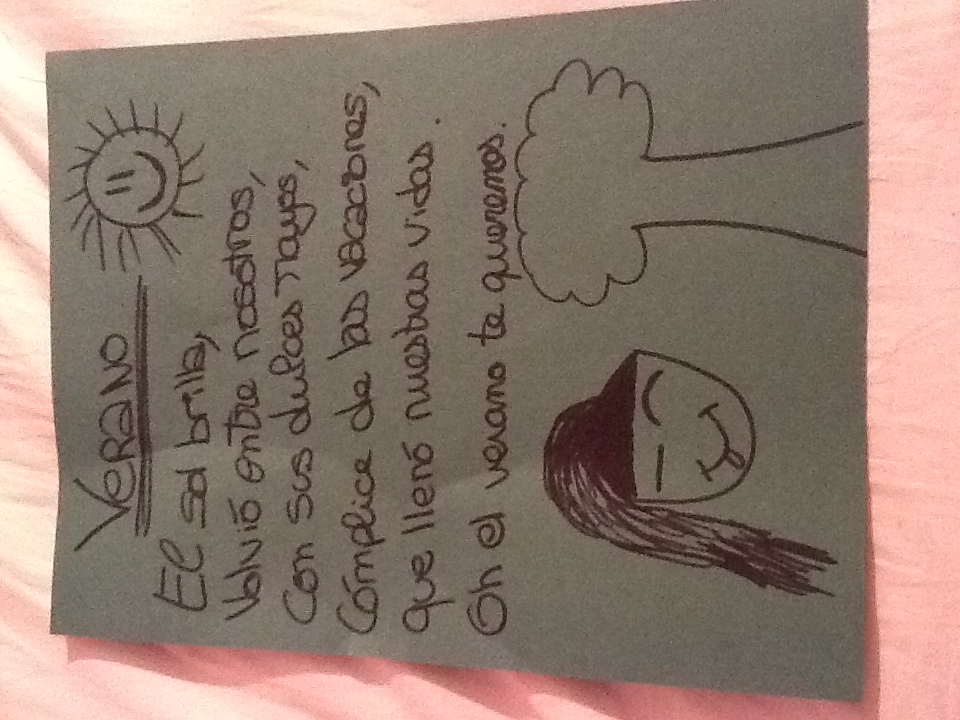 VERANO
El sol brilla,
Volvió entre nosotros,
Con sus dulces rayos,
Cómplice de las vacaciones,
que llenó nuestras vidas.
Oh el verano te queremos.